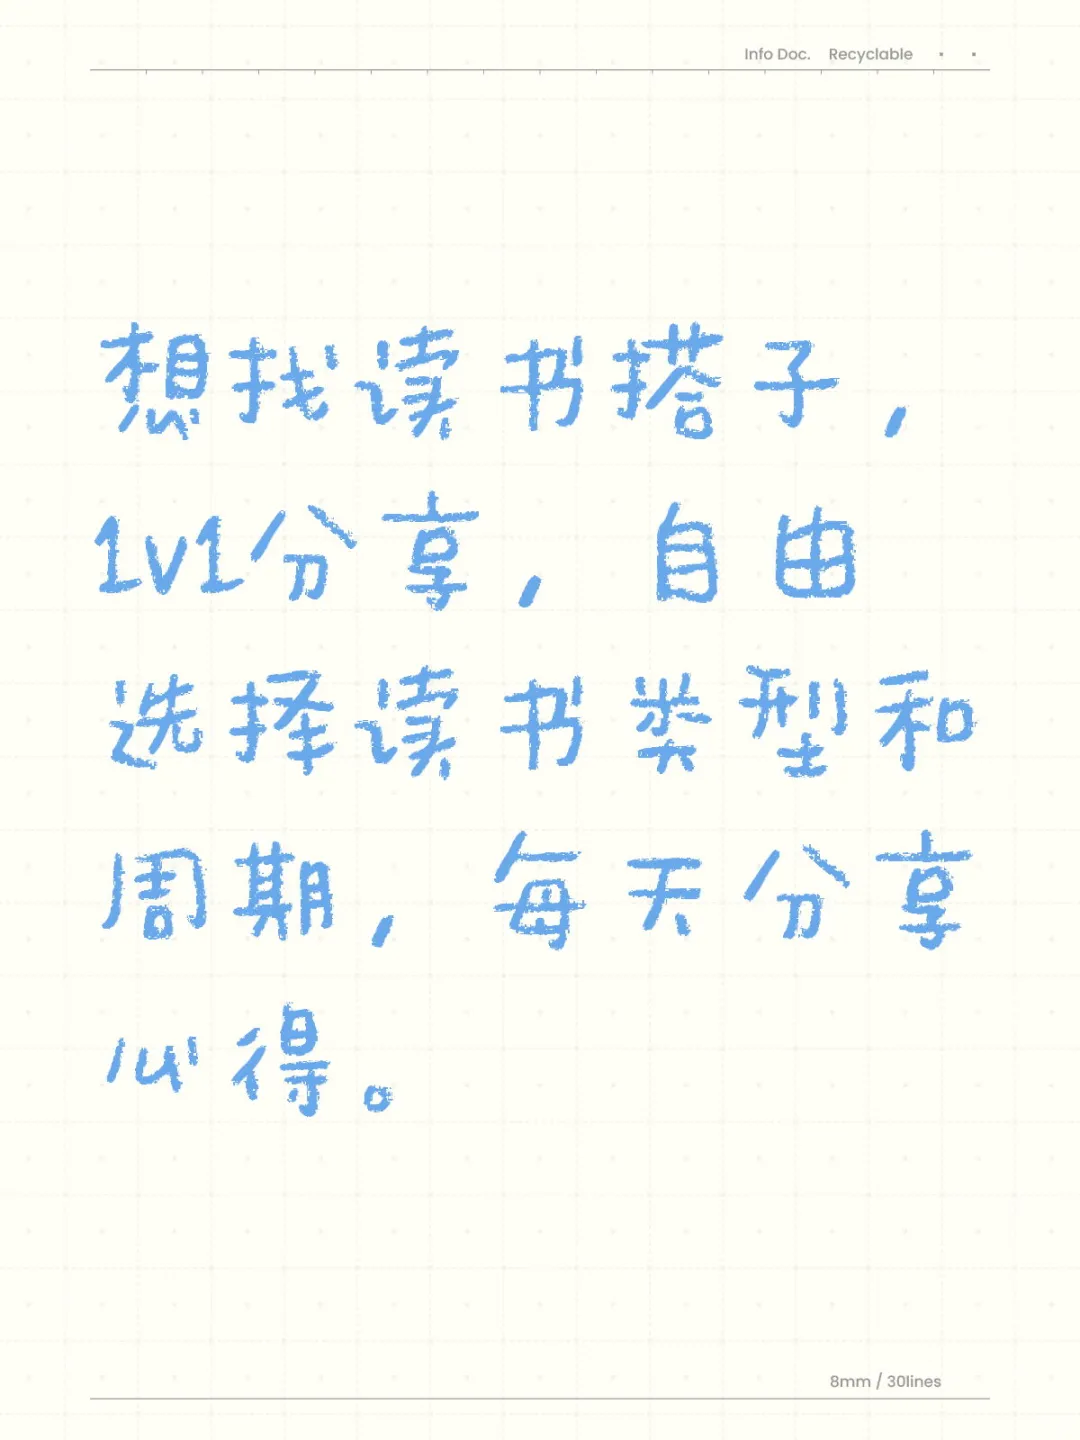 Info Doc. Recyclable
想找读书搭子，
1v1分享，自由
选择读书类型和
周期，每天分享
心得。
8mm / 30lines